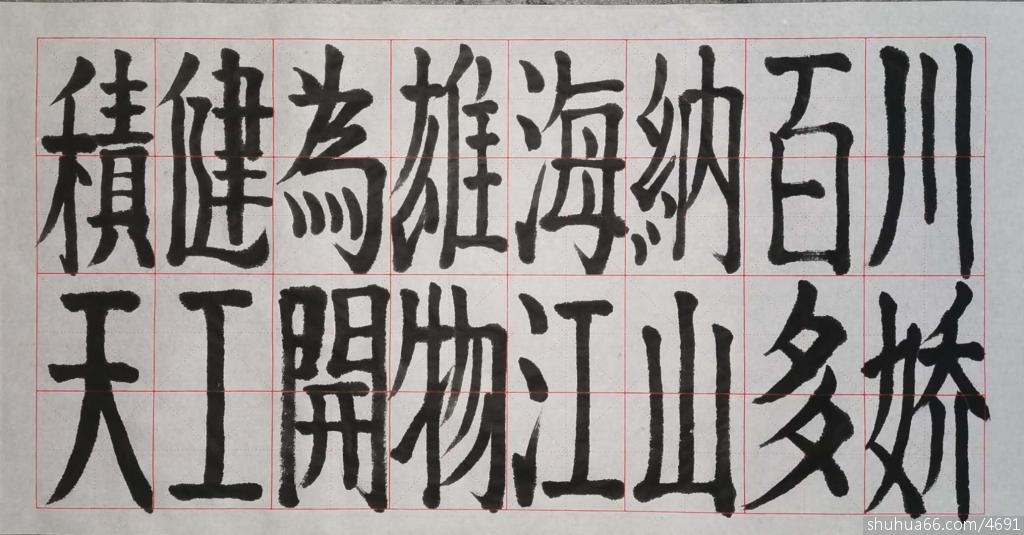 積健為雄海納百川
天工開物江山多娇
shuhua66.com/4691